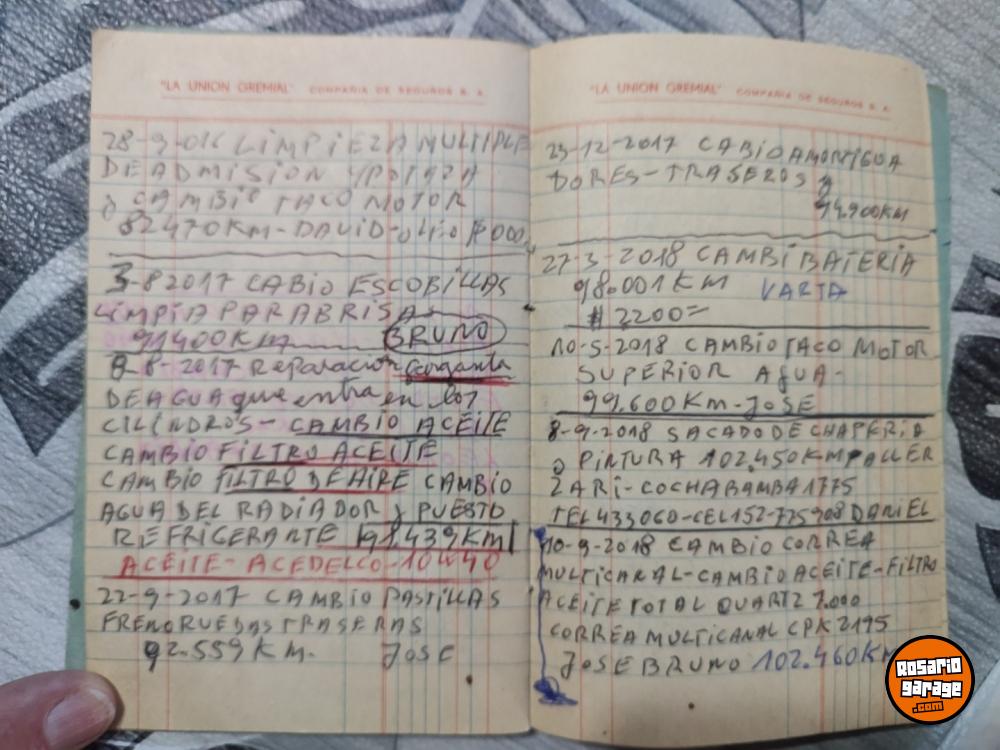 "LA UNION GREMIAL" COMPAÑIA DE SEGUROS S. A.
28-9-016 LIMPIEZA MULTIPLE
DE ADMISION
y CAMBIO TACO MOTOR
82470KM-DAVID-
3-8 2017 CABIO ESCOBILLAS
LIMPIA PARABRISA
91400KM BRUNO
8-2017 Reparacion
DE AGUA que entra en los
CILINDROS- CAMBIO ACEITE
CAMBIO FILTRO ACEITE
CAMBIO FILTRO DE AIRE CAMBIO
AGUA DEL RADIADOR y PUESTO
REFRIGERANTE 91.439KM
ACEITE-ACEDELCO-10W40
22-9-2017 CAMBIO PASTILLAS
FRENO RUEDAS TRASERAS
92.559KM. JOSE
"LA UNION GREMIAL" COMPAÑIA DE SEGUROS S. A.
23-12-2017 CABIO AMORTIGUA
DORES-TRASEROS
94.900KM
27-3-2018 CAMBI BATERIA
98.001KM VARTA
$ 2200=
10-5-2018 CAMBIO TACO MOTOR
SUPERIOR AGUA-
99.600KM-JOSE
8-9-2018 SACADO DE CHAPERIA
y PINTURA 102.450KM TALLER
ZARI-COCHABAMBA 1775
TEL 433060-CEL152-725908 DANIEL
10-9-2018 CAMBIO CORREA
MULTICARAL-CAMBIO ACEITE-FILTRO
ACEITE TOTAL QUARTZ 7.000
CORREA MULTICANAL CPK2195
JOSE BRUNO 102.460KM
ROSARIO
garage
.com